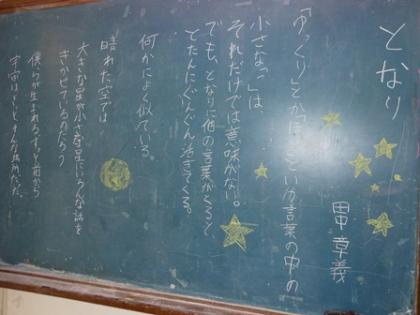 となり
田中章義
「ゆっくり」とか「ほっこ」という言葉の中の
小さな「っ」は、
それだけでは意味がない。
でも、となりに他の言葉がくると
とたんにぐんぐん活きてくる。
何かによく似ている。
晴れた空では
大きな星が小さな星にいろんな話を
きかせているのだろう
僕らが生まれるずっと前から
宇宙はきっとそんな場所だ。